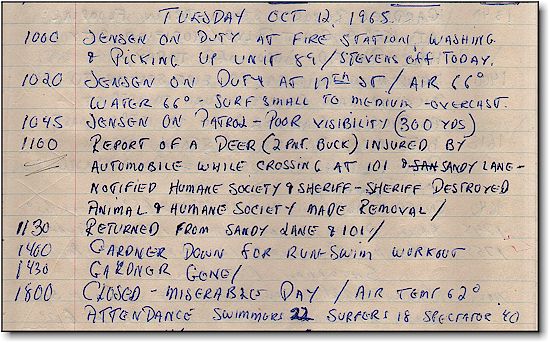 TUESDAY OCT 12, 1965
1000 JENSEN ON DUTY AT FIRE STATION, WASHING
& PICKING UP UNIT 89 / STEVENS OFF TODAY.
1020 JENSEN ON DUTY AT 17TH ST / AIR 66°
WATER 66° - SURF SMALL TO MEDIUM - OVERCAST.
1045 JENSEN ON PATROL - POOR VISIBILITY (300 YDS)
1100 REPORT OF A DEER (2 PNT. BUCK) INJURED BY
AUTOMOBILE WHILE CROSSING AT 101 & SAN SANDY LANE -
NOTIFIED HUMANE SOCIETY & SHERIFF - SHERIFF DESTROYED
ANIMAL & HUMANE SOCIETY MADE REMOVAL /
1130 RETURNED FROM SANDY LANE & 101 /
1400 GARDNER DOWN FOR RUN-SWIM WORKOUT
1430 GARDNER GONE /
1800 CLOSED - MISERABLE DAY / AIR TEMP 62°
ATTENDANCE SWIMMERS 22 SURFERS 18 SPECTATOR 40